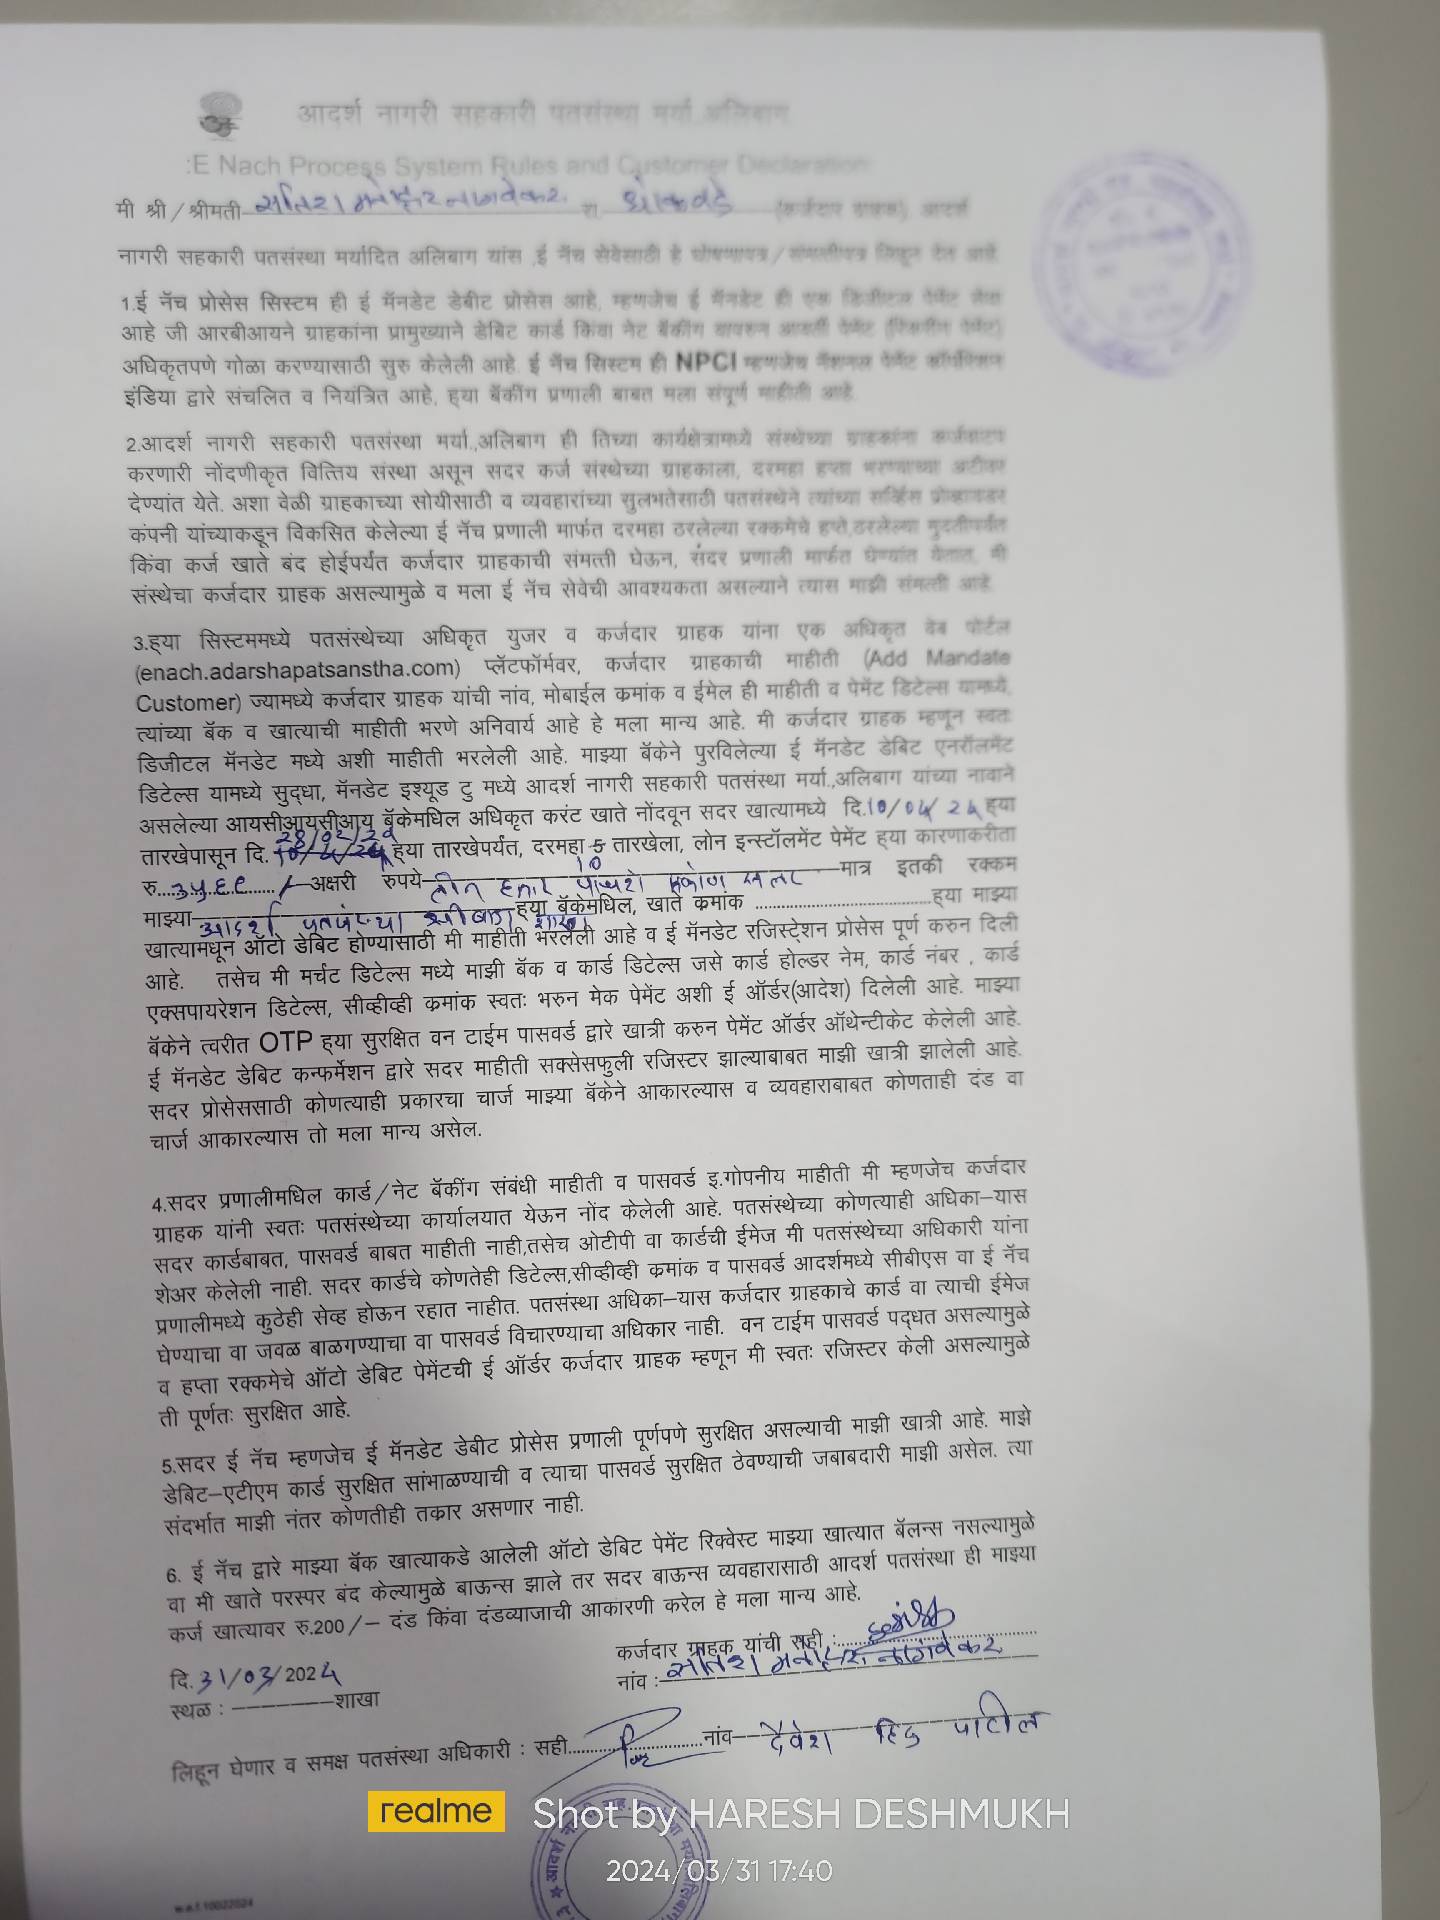 आदर्श नागरी सहकारी पतसंस्था मर्या.अलिबाग
:E Nach Process System Rules and Customer Declaration:
मी श्री/श्रीमती सतिश मनोहर नागवेकर रा. धोकवडे (कर्जदार ग्राहक), आदर्श
नागरी सहकारी पतसंस्था मर्यादित अलिबाग यांस ,ई नॅच सेवेसाठी हे घोषणापत्र/संमत्तीपत्र लिहून देत आहे.
1.ई नॅच प्रोसेस सिस्टम ही ई मॅनडेट डेबीट प्रोसेस आहे, म्हणजेच ई मॅनडेट ही एक डिजीटल पेमेंट सेवा
आहे जी आरबीआयने ग्राहकांना प्रामुख्याने डेबिट कार्ड किंवा नेट बॅकींग वापरुन आवर्ती पेमेंट (रिकरींग पेमेंट)
अधिकृतपणे गोळा करण्यासाठी सुरु केलेली आहे. ई नॅच सिस्टम ही NPCI म्हणजेच नॅशनल पेमेंट कॉर्पोरेशन
इंडिया द्वारे संचलित व नियंत्रित आहे, ह्या बॅकींग प्रणाली बाबत मला संपूर्ण माहीती आहे.
2.आदर्श नागरी सहकारी पतसंस्था मर्या.,अलिबाग ही तिच्या कार्यक्षेत्रामध्ये संस्थेच्या ग्राहकांना कर्जवाटप
करणारी नोंदणीकृत वित्तिय संस्था असून सदर कर्ज संस्थेच्या ग्राहकाला, दरमहा हप्ता भरण्याच्या अटीवर
देण्यांत येते. अशा वेळी ग्राहकाच्या सोयीसाठी व व्यवहारांच्या सुलभतेसाठी पतसंस्थेने त्यांच्या सर्व्हिस प्रोव्हायडर
कंपनी यांच्याकडून विकसित केलेल्या ई नॅच प्रणाली मार्फत दरमहा ठरलेल्या रक्कमेचे हप्ते,ठरलेल्या मुदतीपर्यंत
किंवा कर्ज खाते बंद होईपर्यंत कर्जदार ग्राहकाची संमत्ती घेऊन, सदर प्रणाली मार्फत घेण्यांत येतात. मी
संस्थेचा कर्जदार ग्राहक असल्यामुळे व मला ई नॅच सेवेची आवश्यकता असल्याने त्यास माझी संमत्ती आहे.
3.ह्या सिस्टममध्ये पतसंस्थेच्या अधिकृत युजर व कर्जदार ग्राहक यांना एक अधिकृत वेब पोर्टल
(enach.adarshapatsanstha.com) प्लॅटफॉर्मवर, कर्जदार ग्राहकाची माहीती (Add Mandate
Customer) ज्यामध्ये कर्जदार ग्राहक यांची नांव, मोबाईल क्रमांक व ईमेल ही माहीती व पेमेंट डिटेल्स यामध्ये,
त्यांच्या बॅक व खात्याची माहीती भरणे अनिवार्य आहे हे मला मान्य आहे. मी कर्जदार ग्राहक म्हणून स्वतः
डिजीटल मॅनडेट मध्ये अशी माहीती भरलेली आहे. माझ्या बॅकेने पुरविलेल्या ई मॅनडेट डेबिट एनरॉलमेंट
डिटेल्स यामध्ये सुद्धा, मॅनडेट इश्यूड टु मध्ये आदर्श नागरी सहकारी पतसंस्था मर्या.,अलिबाग यांच्या नावाने
असलेल्या आयसीआयसीआय बॅकेमधिल अधिकृत करंट खाते नोंदवून सदर खात्यामध्ये दि.10/04/24 ह्या
तारखेपासून दि. ह्या तारखेपर्यंत, दरमहा 5 10 तारखेला, लोन इन्स्टॉलमेंट पेमेंट ह्या कारणाकरीता
रु. अक्षरी रुपये तीन हजार पाचशे मात्र इतकी रक्कम
माझ्या आदर्श पतसंस्था श्रीबाग शाखा ह्या बॅकेमधिल, खाते क्रमांक ........ ह्या माझ्या
खात्यामधून ऑटो डेबिट होण्यासाठी मी माहीती भरलेली आहे व ई मॅनडेट रजिस्टे्शन प्रोसेस पूर्ण करुन दिली
आहे. तसेच मी मर्चंट डिटेल्स मध्ये माझी बॅक व कार्ड डिटेल्स जसे कार्ड होल्डर नेम, कार्ड नंबर , कार्ड
एक्सपायरेशन डिटेल्स, सीव्हीव्ही क्रमांक स्वतः भरुन मेक पेमेंट अशी ई ऑर्डर(आदेश) दिलेली आहे. माझ्या
बॅकेने त्वरीत OTP ह्या सुरक्षित वन टाईम पासवर्ड द्वारे खात्री करुन पेमेंट ऑर्डर ऑथेन्टीकेट केलेली आहे.
ई मॅनडेट डेबिट कन्फर्मेशन द्वारे सदर माहीती सक्सेसफुली रजिस्टर झाल्याबाबत माझी खात्री झालेली आहे.
सदर प्रोसेससाठी कोणत्याही प्रकारचा चार्ज माझ्या बॅकेने आकारल्यास व व्यवहाराबाबत कोणताही दंड वा
चार्ज आकारल्यास तो मला मान्य असेल.
4.सदर प्रणालीमधिल कार्ड/नेट बॅकींग संबंधी माहीती व पासवर्ड इ.गोपनीय माहीती मी म्हणजेच कर्जदार
ग्राहक यांनी स्वतः पतसंस्थेच्या कार्यालयात येऊन नोंद केलेली आहे. पतसंस्थेच्या कोणत्याही अधिका–यास
सदर कार्डबाबत, पासवर्ड बाबत माहीती नाही,तसेच ओटीपी वा कार्डची ईमेज मी पतसंस्थेच्या अधिकारी यांना
शेअर केलेली नाही. सदर कार्डचे कोणतेही डिटेल्स,सीव्हीव्ही क्रमांक व पासवर्ड आदर्शमध्ये सीबीएस वा ई नॅच
प्रणालीमध्ये कुठेही सेव्ह होऊन रहात नाहीत. पतसंस्था अधिका–यास कर्जदार ग्राहकाचे कार्ड वा त्याची ईमेज
घेण्याचा वा जवळ बाळगण्याचा वा पासवर्ड विचारण्याचा अधिकार नाही. वन टाईम पासवर्ड पद्धत असल्यामुळे
व हप्ता रक्कमेचे ऑटो डेबिट पेमेंटची ई ऑर्डर कर्जदार ग्राहक म्हणून मी स्वतः रजिस्टर केली असल्यामुळे
ती पूर्णतः सुरक्षित आहे.
5.सदर ई नॅच म्हणजेच ई मॅनडेट डेबीट प्रोसेस प्रणाली पूर्णपणे सुरक्षित असल्याची माझी खात्री आहे. माझे
डेबिट–एटीएम कार्ड सुरक्षित सांभाळण्याची व त्याचा पासवर्ड सुरक्षित ठेवण्याची जबाबदारी माझी असेल. त्या
संदर्भात माझी नंतर कोणतीही तक्रार असणार नाही.
6. ई नॅच द्वारे माझ्या बॅक खात्याकडे आलेली ऑटो डेबिट पेमेंट रिक्वेस्ट माझ्या खात्यात बॅलन्स नसल्यामुळे
वा मी खाते परस्पर बंद केल्यामुळे बाऊन्स झाले तर सदर बाऊन्स व्यवहारासाठी आदर्श पतसंस्था ही माझ्या
कर्ज खात्यावर रु.200/– दंड किंवा दंडव्याजाची आकारणी करेल हे मला मान्य आहे.
कर्जदार ग्राहक यांची सही :
दि. 31/03/2024 नांव : सतिश मनोहर नागवेकर
स्थळ : –––––––शाखा
लिहून घेणार व समक्ष पतसंस्था अधिकारी : सही............नांव–– देवेश पाटील
realme Shot by HARESH DESHMUKH
2024/03/31 17:40
w.e.f.10022024